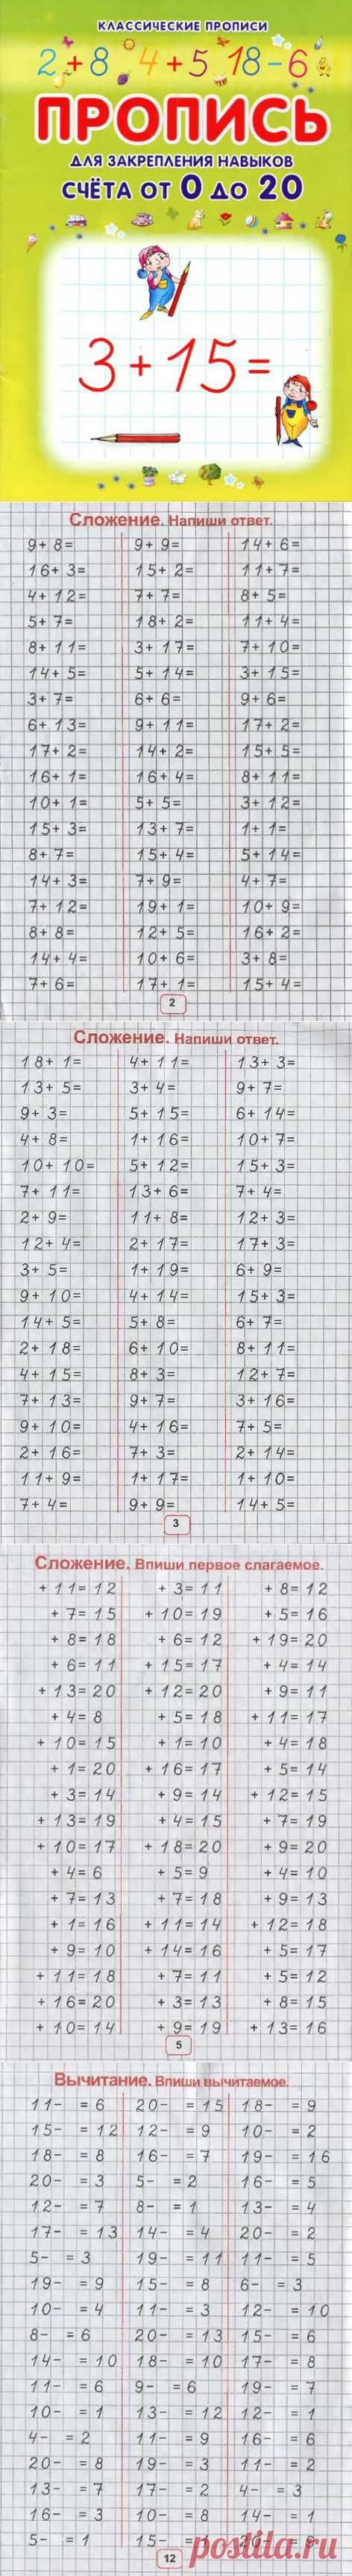 КЛАССИЧЕСКИЕ ПРОПИСИ
2+8 4+5 18-6
ПРОПИСЬ
ДЛЯ ЗАКРЕПЛЕНИЯ НАВЫКОВ
СЧЁТА ОТ 0 ДО 20
3+15=
Сложение. Напиши ответ.
9+8= 9+9= 14+6=
16+3= 15+2= 11+7=
4+12= 7+7= 8+5=
5+7= 18+2= 11+4=
8+11= 3+17= 7+10=
14+5= 5+14= 3+15=
3+7= 6+6= 9+6=
6+13= 9+11= 17+2=
17+2= 14+2= 15+5=
16+1= 16+4= 8+11=
10+1= 5+5= 3+12=
15+3= 13+7= 1+1=
8+7= 15+4= 5+14=
14+3= 7+9= 4+7=
7+12= 19+1= 10+9=
8+8= 12+5= 16+2=
14+4= 10+6= 3+8=
7+6= 17+1= 15+4=
2
Сложение. Напиши ответ.
18+1= 4+11= 13+3=
13+5= 3+4= 9+7=
9+3= 5+15= 6+14=
4+8= 1+16= 10+7=
10+10= 5+12= 15+3=
7+11= 13+6= 7+4=
2+9= 11+8= 12+3=
12+4= 2+17= 17+3=
3+5= 1+19= 6+9=
9+10= 4+14= 15+3=
14+5= 5+8= 6+7=
2+18= 6+10= 8+11=
4+15= 8+3= 12+7=
7+13= 9+7= 3+16=
9+10= 4+16= 7+5=
2+16= 7+3= 2+14=
11+9= 1+17= 1+10=
7+4= 9+9= 14+5=
3
Сложение. Впиши первое слагаемое.
+11=12 +3=11 +8=12
+7=15 +10=19 +5=16
+8=18 +6=12 +19=20
+6=11 +15=17 +4=14
+13=20 +12=20 +9=11
+4=8 +5=18 +11=17
+10=15 +1=10 +4=18
+1=20 +16=17 +5=14
+3=14 +9=14 +12=15
+13=19 +4=15 +7=19
+10=17 +18=20 +9=20
+4=6 +5=9 +4=10
+7=13 +7=18 +9=13
+1=16 +11=14 +12=18
+9=10 +14=16 +5=17
+11=18 +7=11 +5=12
+16=20 +3=13 +8=15
+10=14 +9=19 +13=16
5
Вычитание. Впиши вычитаемое.
11- =6 20- =15 18- =9
15- =12 12- =9 10- =2
18- =8 16- =7 19- =16
20- =3 5- =2 16- =5
12- =7 8- =1 13- =4
17- =13 14- =4 20- =2
5- =3 19- =11 11- =5
19- =9 15- =8 6- =3
10- =4 11- =3 12- =10
8- =6 20- =13 15- =6
14- =10 18- =10 17- =8
11- =6 9- =6 19- =7
10- =1 13- =12 12- =1
4- =2 11- =9 16- =6
20- =8 19- =3 11- =2
13- =7 17- =2 4- =3
16- =3 10- =8 14- =1
5- =1 15- 20-
12
postila.ru